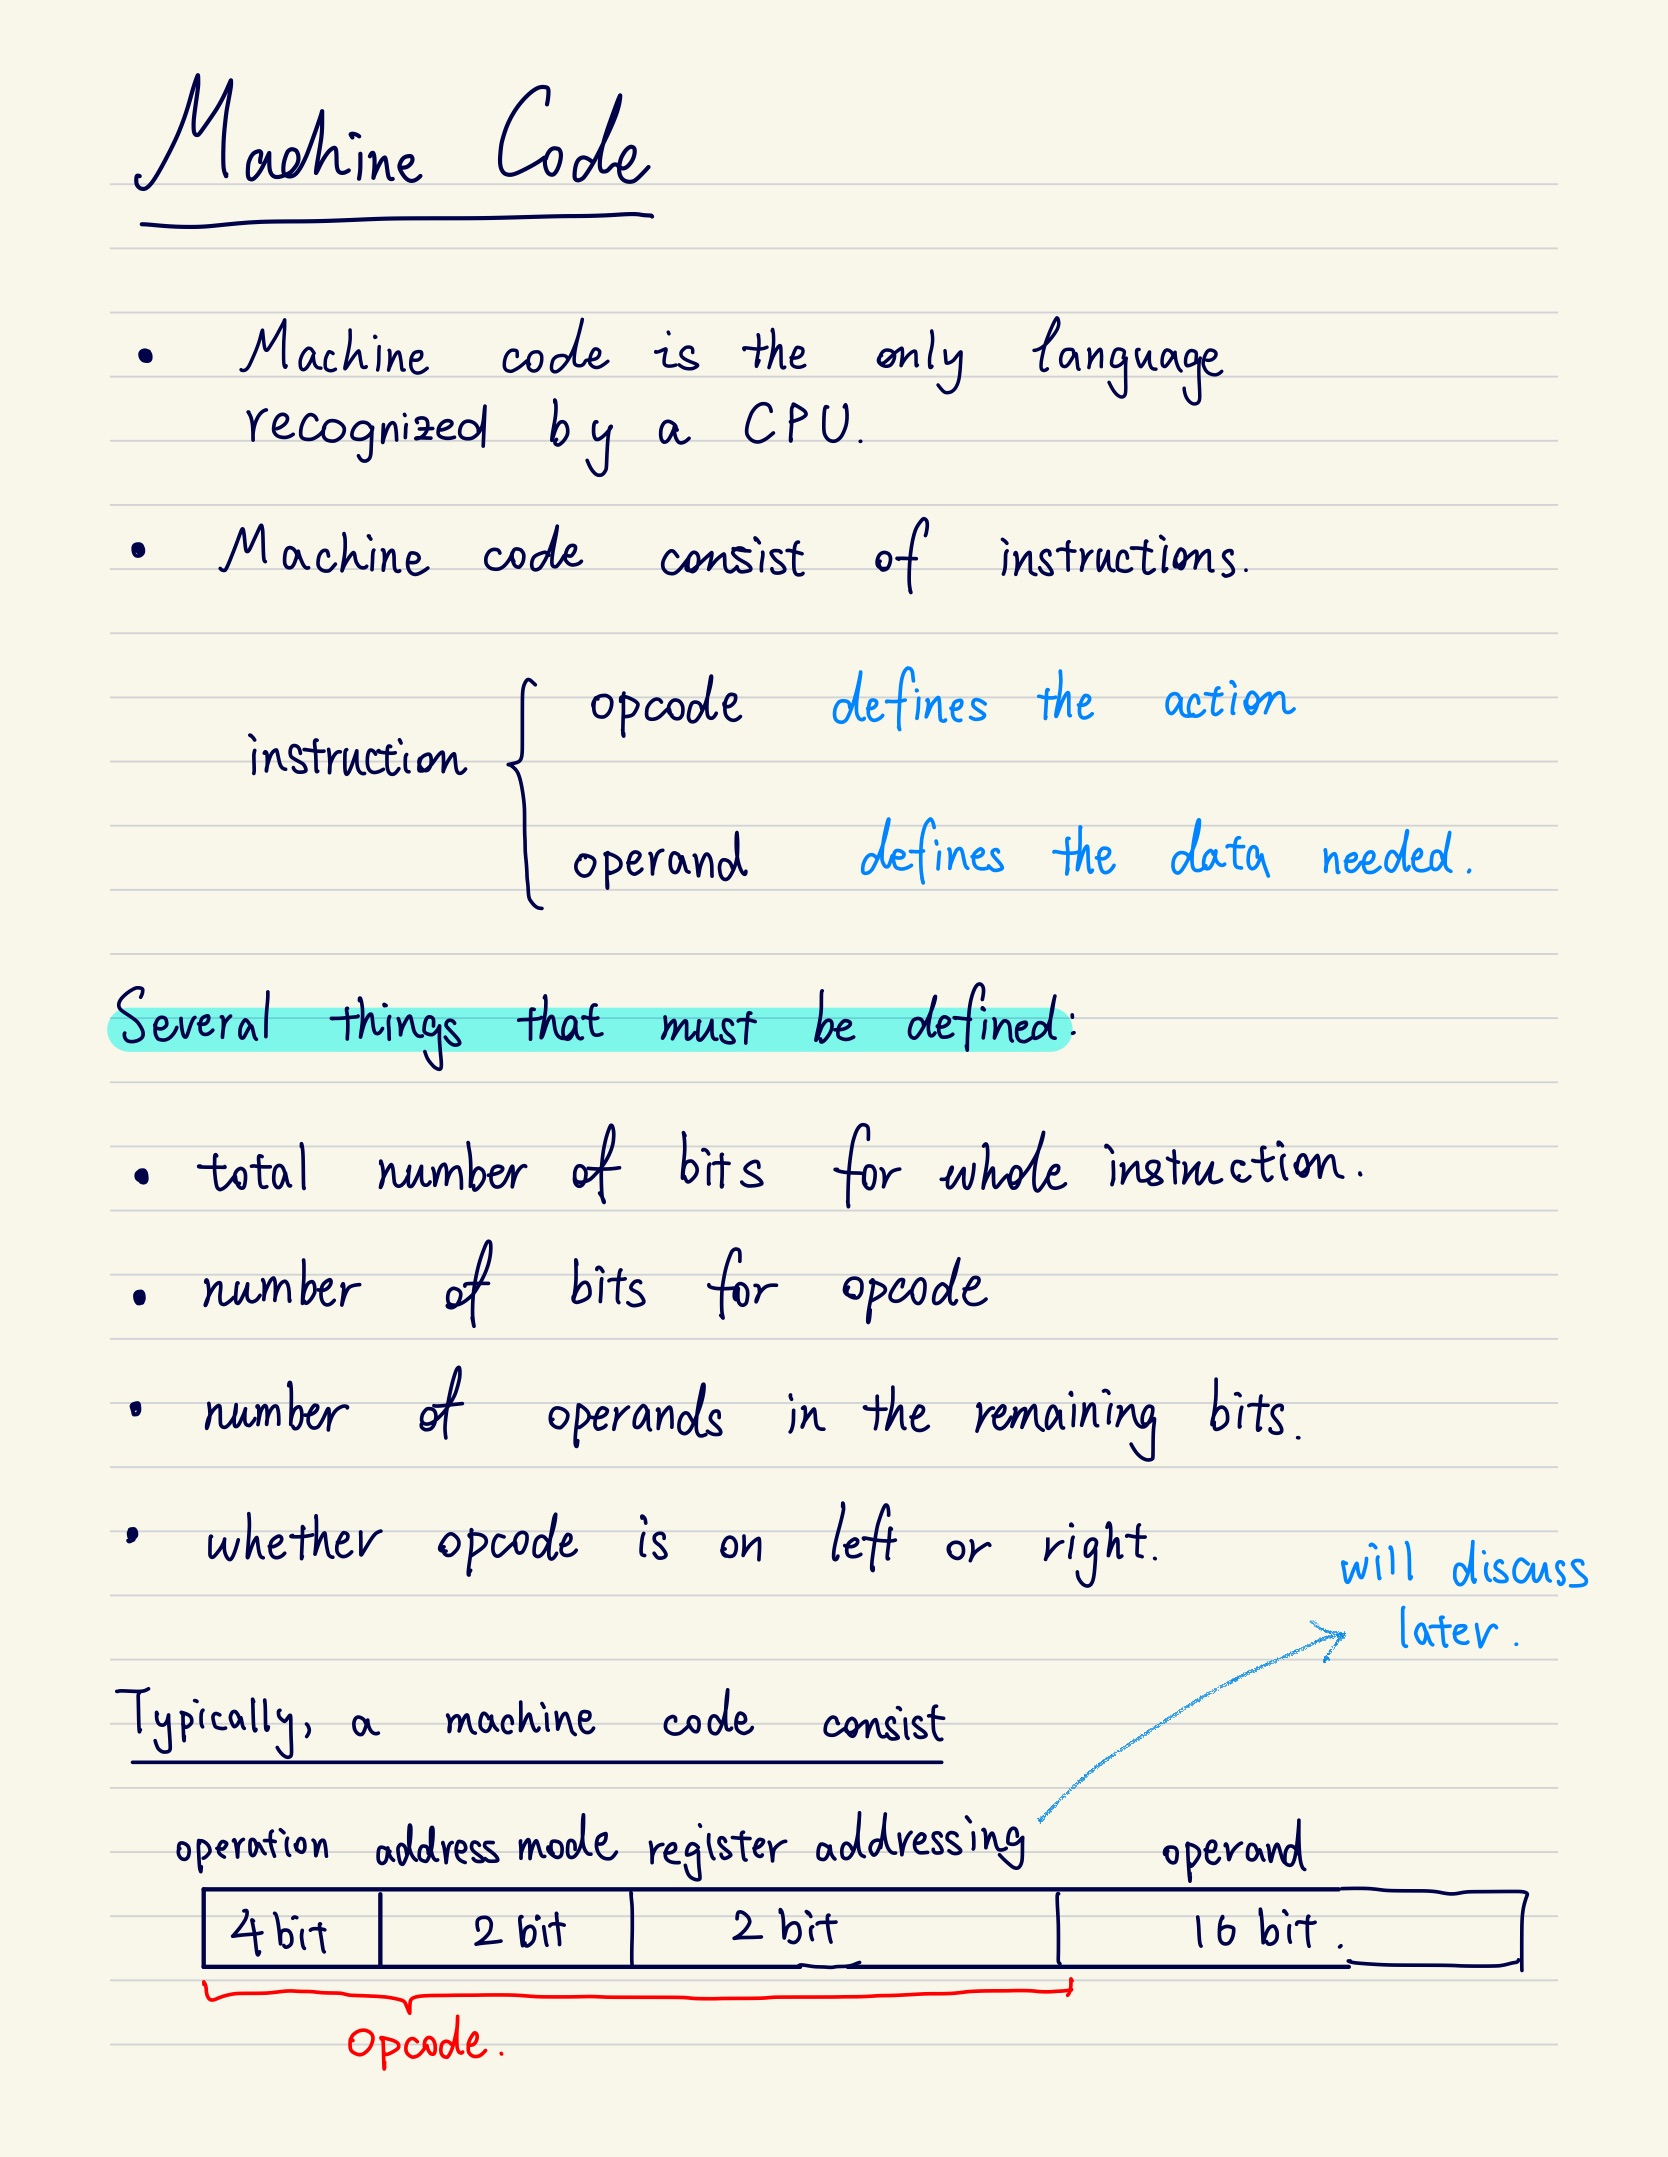 Machine Code
• Machine code is the only language
recognized by a CPU.
• Machine code consist of instructions.
opcode defines the action
instruction
operand defines the data needed.
Several things that must be defined:
• total number of bits for whole instruction.
• number of bits for opcode
• number of operands in the remaining bits.
• whether opcode is on left or right.
will discuss
later.
Typically, a machine code consist
operation address mode register addressing operand
4 bit 2 bit 2 bit 16 bit.
Opcode.